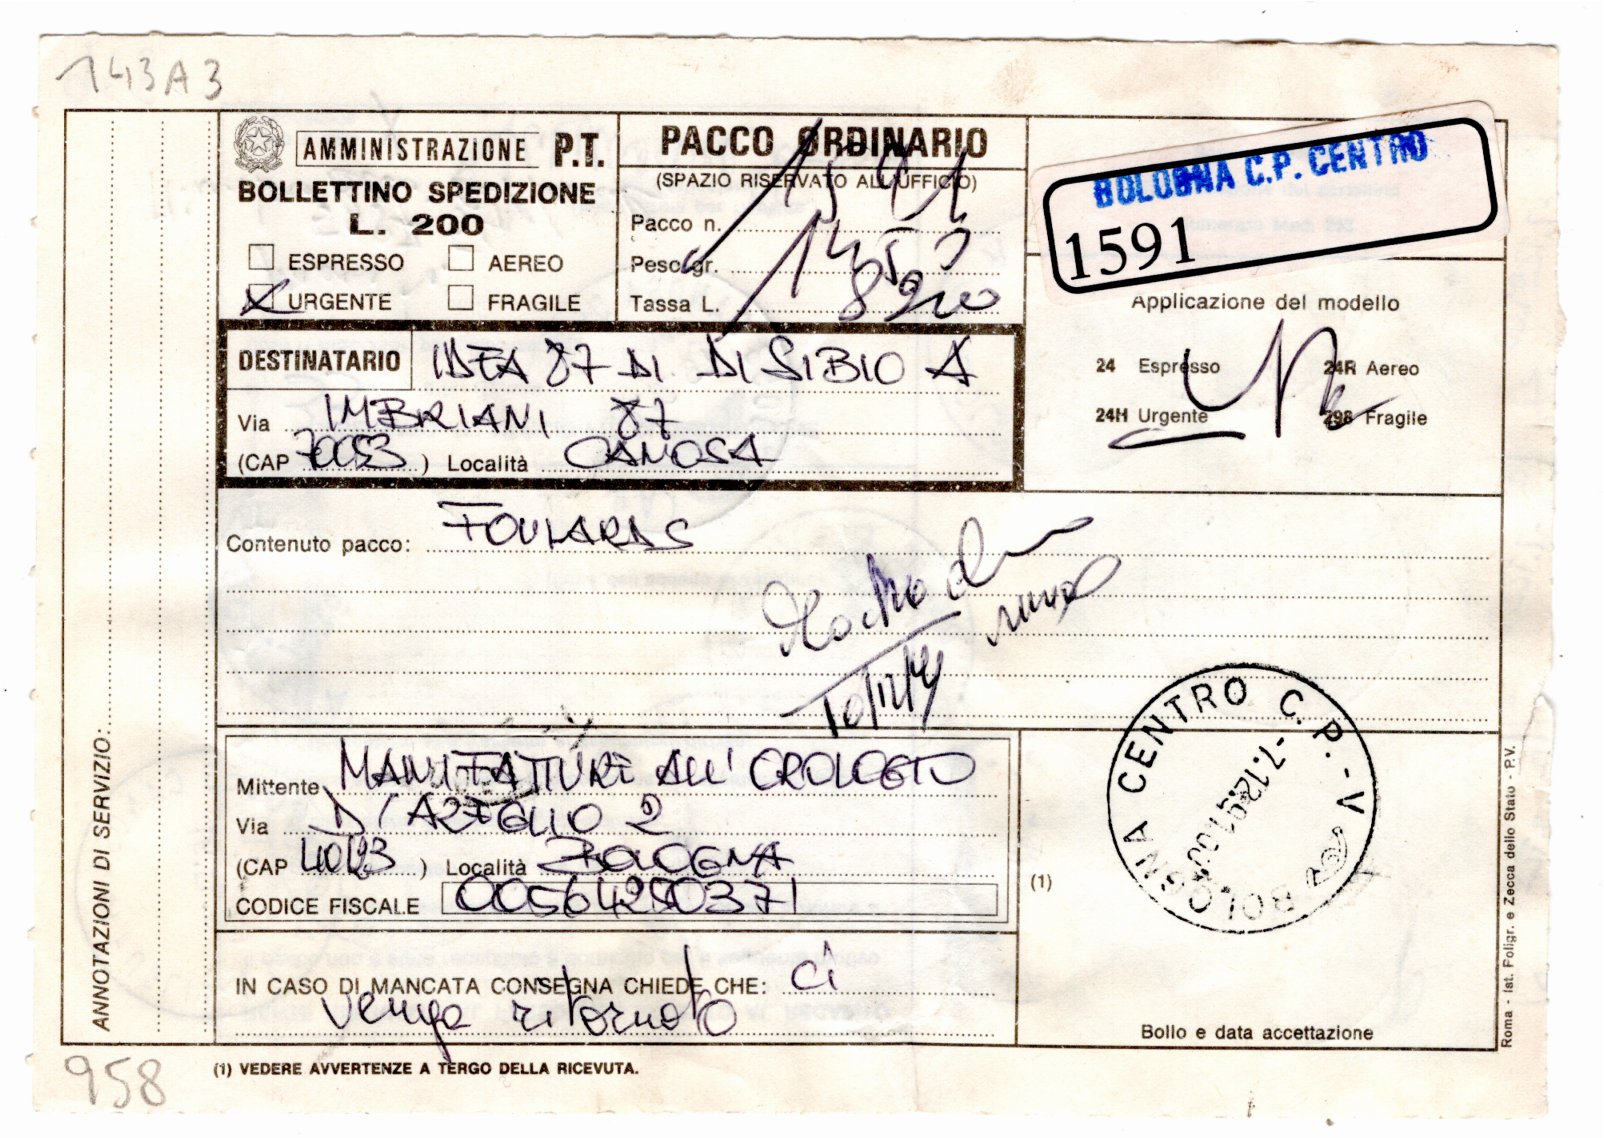 143A3
AMMINISTRAZIONE P.T.
BOLLETTINO SPEDIZIONE
L. 200
ESPRESSO AEREO
URGENTE FRAGILE
PACCO ORDINARIO
(SPAZIO RISERVATO ALL'UFFICIO)
Pacco n. 1591
Peso gr.
Tassa L.
BOLOGNA C.P. CENTRO
1591
Applicazione del modello
24 Espresso 24R Aereo
24H Urgente 298 Fragile
DESTINATARIO IDEA 87 DI DI SIBIO A
Via IMBRIANI 87
(CAP 70053) Località CANOSA
Contenuto pacco: FOULARDS
Mittente MANIFATTURE ALL'OROLOGIO
Via D'AZEGLIO 2
(CAP 40123) Località BOLOGNA
CODICE FISCALE 00564280371
IN CASO DI MANCATA CONSEGNA CHIEDE CHE: ci
venga ritornato
(1)
BOLOGNA CENTRO C.P.-V
-7.12.91
Bollo e data accettazione
ANNOTAZIONI DI SERVIZIO:
Roma - Ist. Poligr. e Zecca dello Stato - P.V.
(1) VEDERE AVVERTENZE A TERGO DELLA RICEVUTA.
958